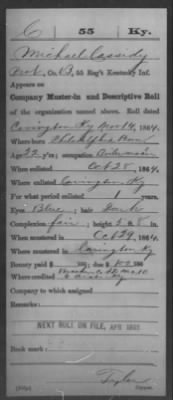 C 55 Ky.
Michael Cassidy
Co. B, 55 Reg't Kentucky Inf.
Appears on
Company Muster-in and Descriptive Roll
of the organization named above. Roll dated
Covington Ky Nov 14, 1864.
Where born Philadelphia Penn
Age 22 y'rs; occupation
When enlisted Oct 28, 1864.
Where enlisted Covington Ky
For what period enlisted 1 years.
Eyes Blue; hair Dark
Complexion fair; height 5 ft. 8 in.
When mustered in Oct 29, 1864.
Where mustered in Covington Ky
Bounty paid $ 100; due $ 100
Where credited
Company to which assigned
Remarks:
NEXT ROLL ON FILE, APR 1865
Book mark:
Taylor
Copyist.